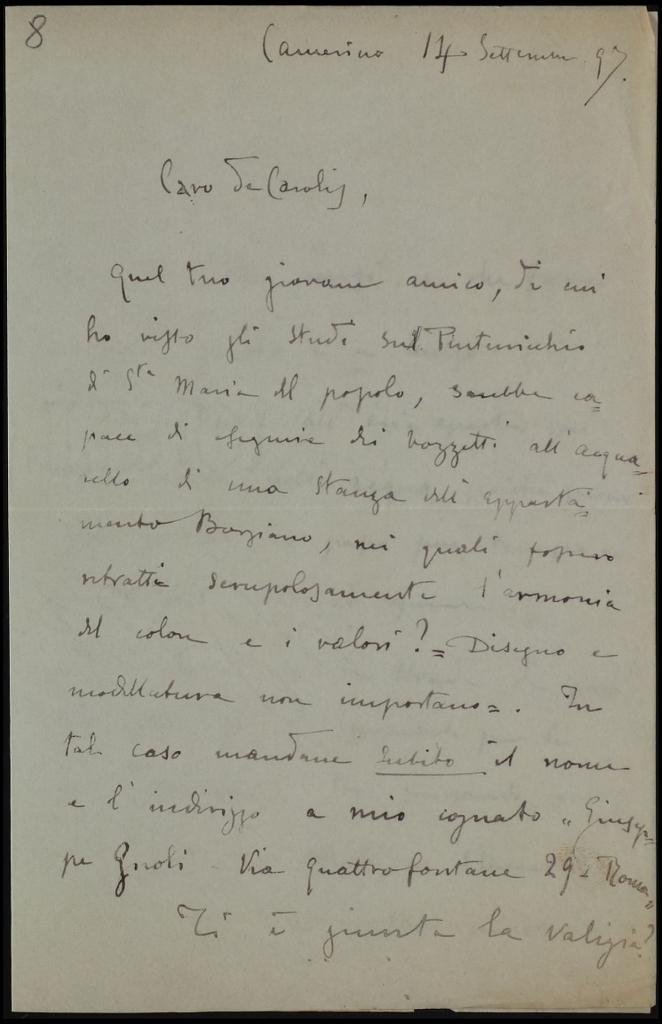 8
Camerino 14 Settembre 97.
Caro De Carolis,
Quel tuo giovane amico, di cui
ho visto gli studi sul Pinturicchio
di Sta Maria del popolo, sarebbe ca=
pace di eseguire dei bozzetti all'acqua=
rello di una stanza dell'apparta=
mento Borgiano, nei quali fossero
ritratti scrupolosamente l'armonia
del colore e i valori? = Disegno e
modellatura non importano =. In
tal caso mandane subito il nome
e l'indirizzo a mio cognato „ Giusep=
pe Gnoli - Via Quattrofontane 29 - Roma „
Ti è giunta la valigia?